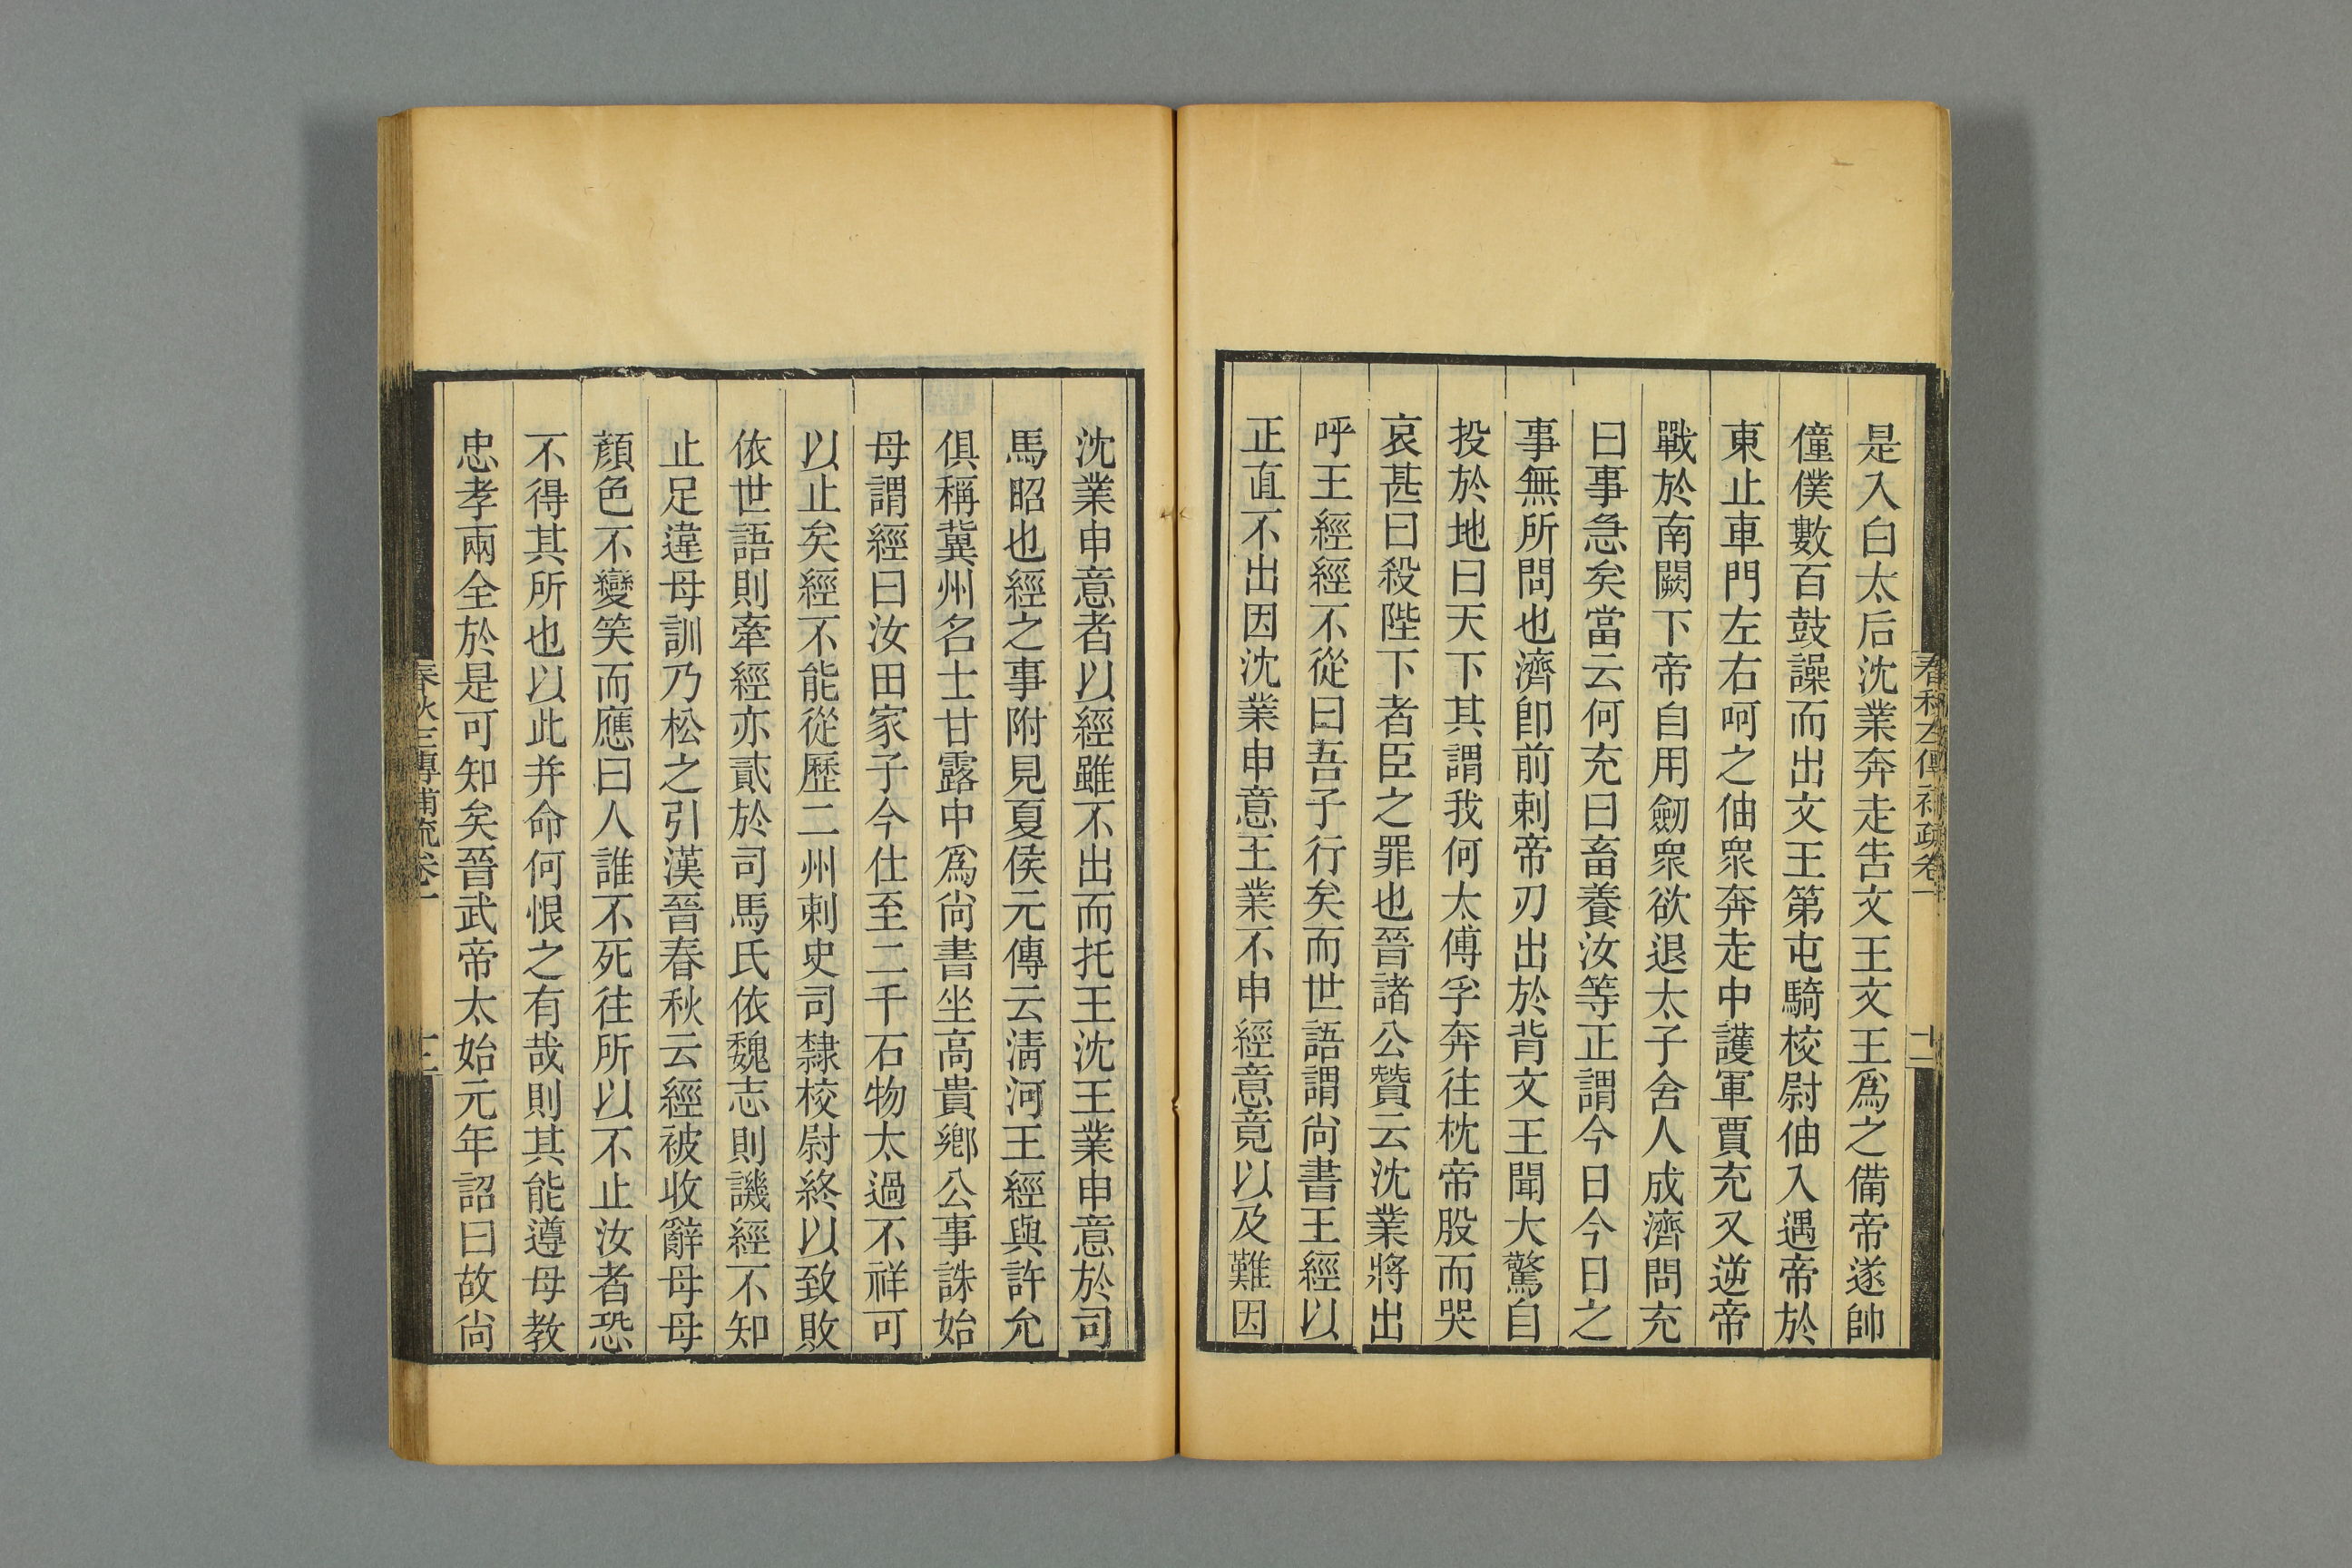 是入白太后沈業奔走告文王文王爲之備帝遂帥
僮僕數百鼓譟而出文王第屯騎校尉伷入遇帝於
東止車門左右呵之伷眾奔走中護軍賈充又逆帝
戰於南闕下帝自用劒眾欲退太子舍人成濟問充
曰事急矣當云何充曰畜養汝等正謂今日今日之
事無所問也濟卽前刺帝刃出於背文王聞大驚自
投於地曰天下其謂我何太傅孚奔往枕帝股而哭
哀甚曰殺陛下者臣之罪也晉諸公贊云沈業將出
呼王經經不從曰吾子行矣而世語謂尙書王經以
正直不出因沈業申意王業不申經意竟以及難因
春秋左傳補疏卷一
十二
沈業申意者以經雖不出而托王沈王業申意於司
馬昭也經之事附見夏侯元傳云淸河王經與許允
俱稱冀州名士甘露中爲尙書坐高貴鄉公事誅始
母謂經曰汝田家子今仕至二千石物太過不祥可
以止矣經不能從歷二州刺史司隸校尉終以致敗
依世語則牽經亦貳於司馬氏依魏志則譏經不知
止足違母訓乃松之引漢晉春秋云經被收辭母母
顏色不變笑而應曰人誰不死往所以不止汝者恐
不得其所也以此并命何恨之有哉則其能遵母教
忠孝兩全於是可知矣晉武帝太始元年詔曰故尙
春秋左傳補疏卷一